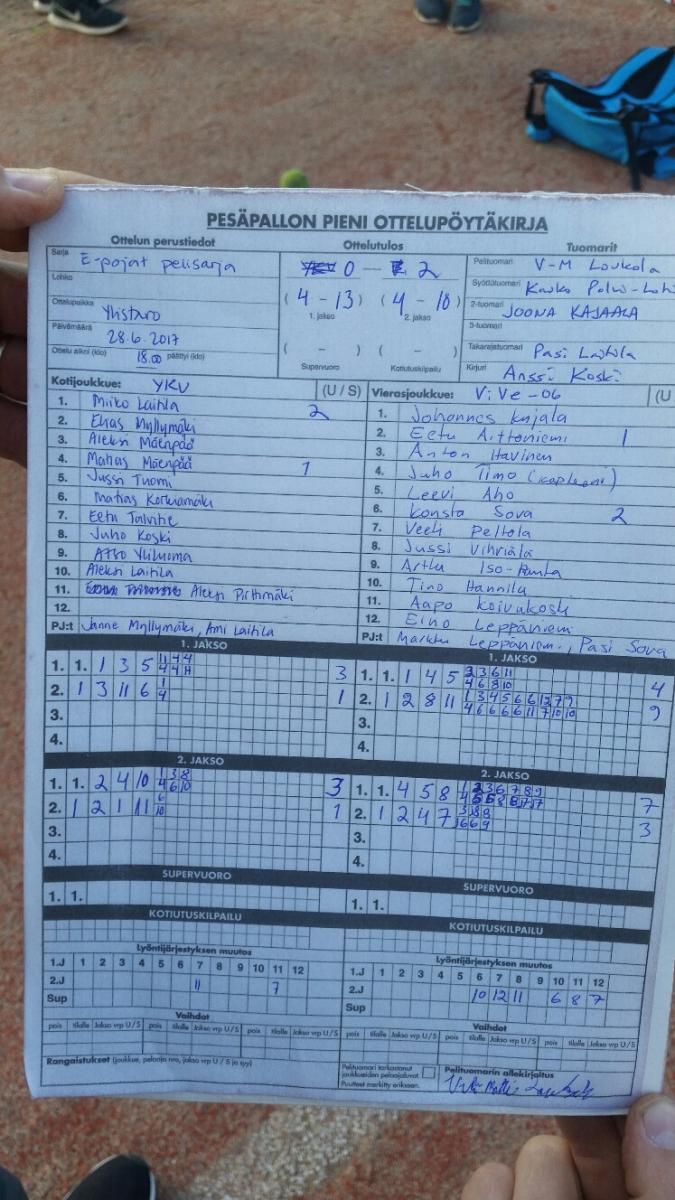 PESÄPALLON PIENI OTTELUPÖYTÄKIRJA
Ottelun perustiedot Ottelutulos Tuomarit
Sarja E-pojat pelisarja
0 - 2
Pelituomari V-M Loukola
Lohko
Syöttötuomari
(4 - 13) (4 - 10)
1. jakso 2. jakso
2-tuomari JOONA KAJAALA
Ottelupaikka Ylistaro
3-tuomari
Päivämäärä 28.6.2017
( - ) ( - )
Takarajatuomari Pasi Laitila
Ottelu alkoi (klo) 18.00 päättyi (klo)
Supervuoro Kotiutuskilpailu
Kirjuri Anssi Koski
Kotijoukkue: YKV (U / S)
1. Miiko Laitila 2
2. Elias Myllymäki
3. Aleksi Mäenpää
4. Matias Mäenpää 1
5. Jussi Tuomi
6. Matias Korkiamäki
7. Eetu Talvitie
8. Juho Koski
9. Yliluoma
10. Aleksi Laitila
11. Aleksi Pirttimäki
12.
PJ:t Janne Myllymäki, Ami Laitila
Vierasjoukkue: ViVe -06 (U
1. Johannes Kujala
2. Eetu Aittoniemi 1
3. Anton Havinen
4. Juho Timo (kapteeni)
5. Leevi Aho
6. Konsta Sova 2
7. Veeti Peltola
8. Jussi Vihriälä
9. Arttu Iso-Ranta
10. Timo Hannila
11. Aapo Koivakoski
12. Eino Leppäniemi
PJ:t Markku Leppäniemi, Pasi Sova
1. JAKSO
1. 1. 1 3 5 3
2. 1 3 11 6 1 4 1
3.
4.
1. JAKSO
1. 1. 1 4 5 3 3 6 11 4 6 8 10 4
2. 1 2 8 11 9
3.
4.
2. JAKSO
1. 1. 2 4 10 1 3 8 4 6 10 3
2. 1 2 1 11 6 10 1
3.
4.
2. JAKSO
1. 1. 4 5 8 7
2. 1 2 4 7 3
3.
4.
SUPERVUORO
1. 1.
SUPERVUORO
1. 1.
KOTIUTUSKILPAILU
KOTIUTUSKILPAILU
Lyöntijärjestyksen muutos
1.J 1 2 3 4 5 6 7 8 9 10 11 12
2.J 11 7
Sup
Lyöntijärjestyksen muutos
1.J 1 2 3 4 5 6 7 8 9 10 11 12
2.J 10 12 11 6 8 7
Sup
Vaihdot
pois tilalle Jakso vrp U / S pois tilalle Jakso vrp U / S pois tilalle Jakso vrp U / S
Vaihdot
pois tilalle Jakso vrp U / S pois tilalle Jakso vrp U / S pois tilalle Jakso vrp U / S
Rangaistukset (joukkue, pelaaja nro, jakso vrp U / S ja syy)
Pelituomari tarkastanut
joukkueiden pelaajaluvat.
Puutteet merkitty erikseen.
Pelituomarin allekirjoitus